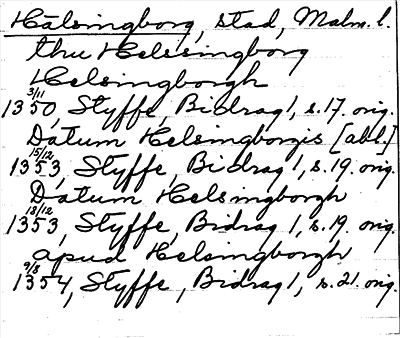 Hälsingborg, stad, Malm. l.
thu Helssingborg
Helsingborgh
3/11 1350, Styffe, Bidrag 1, s. 17. orig.
Datum Helsingborgis [abl.]
15/12 1353, Styffe, Bidrag 1, s. 19. orig.
Datum Helsingborgh
18/12 1353, Styffe, Bidrag 1, s. 19. orig.
apud Helsingborgh
9/8 1354, Styffe, Bidrag 1, s. 21. orig.